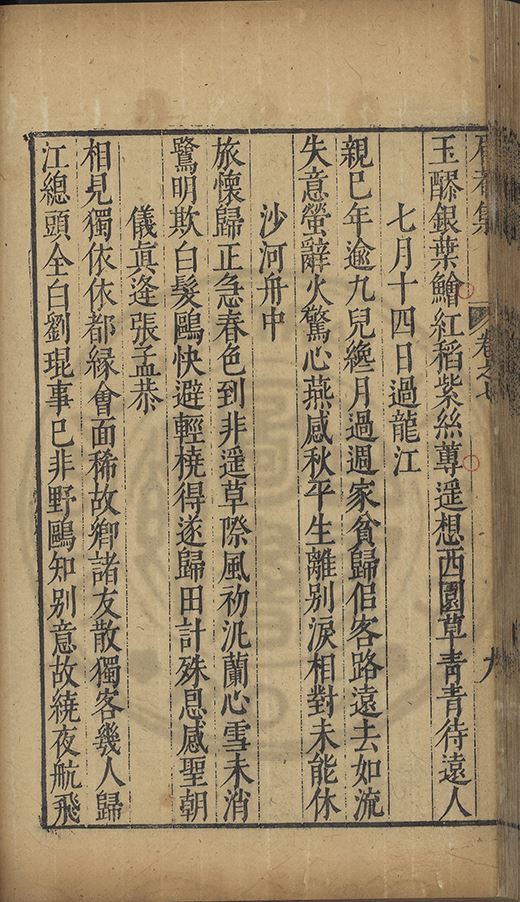 集 卷之七 九
玉醪銀葉鱠紅稻紫絲蓴遥想西園草青青待遠人
七月十四日過龍江
親巳年逾九兒纔月過週家貧歸侣客路遠去如流
失意螢辭火驚心燕感秋平生離别淚相對未能休
沙河舟中
旅懷歸正急春色到非遥草際風初汎蘭心雪未消
鷺明欺白髮鷗快避輕橈得遂歸田計殊恩感聖朝
儀真逢張孟恭
相見獨依依都緣會面稀故鄉諸友散獨客幾人歸
江總頭全白劉琨事巳非野鷗知别意故繞夜航飛